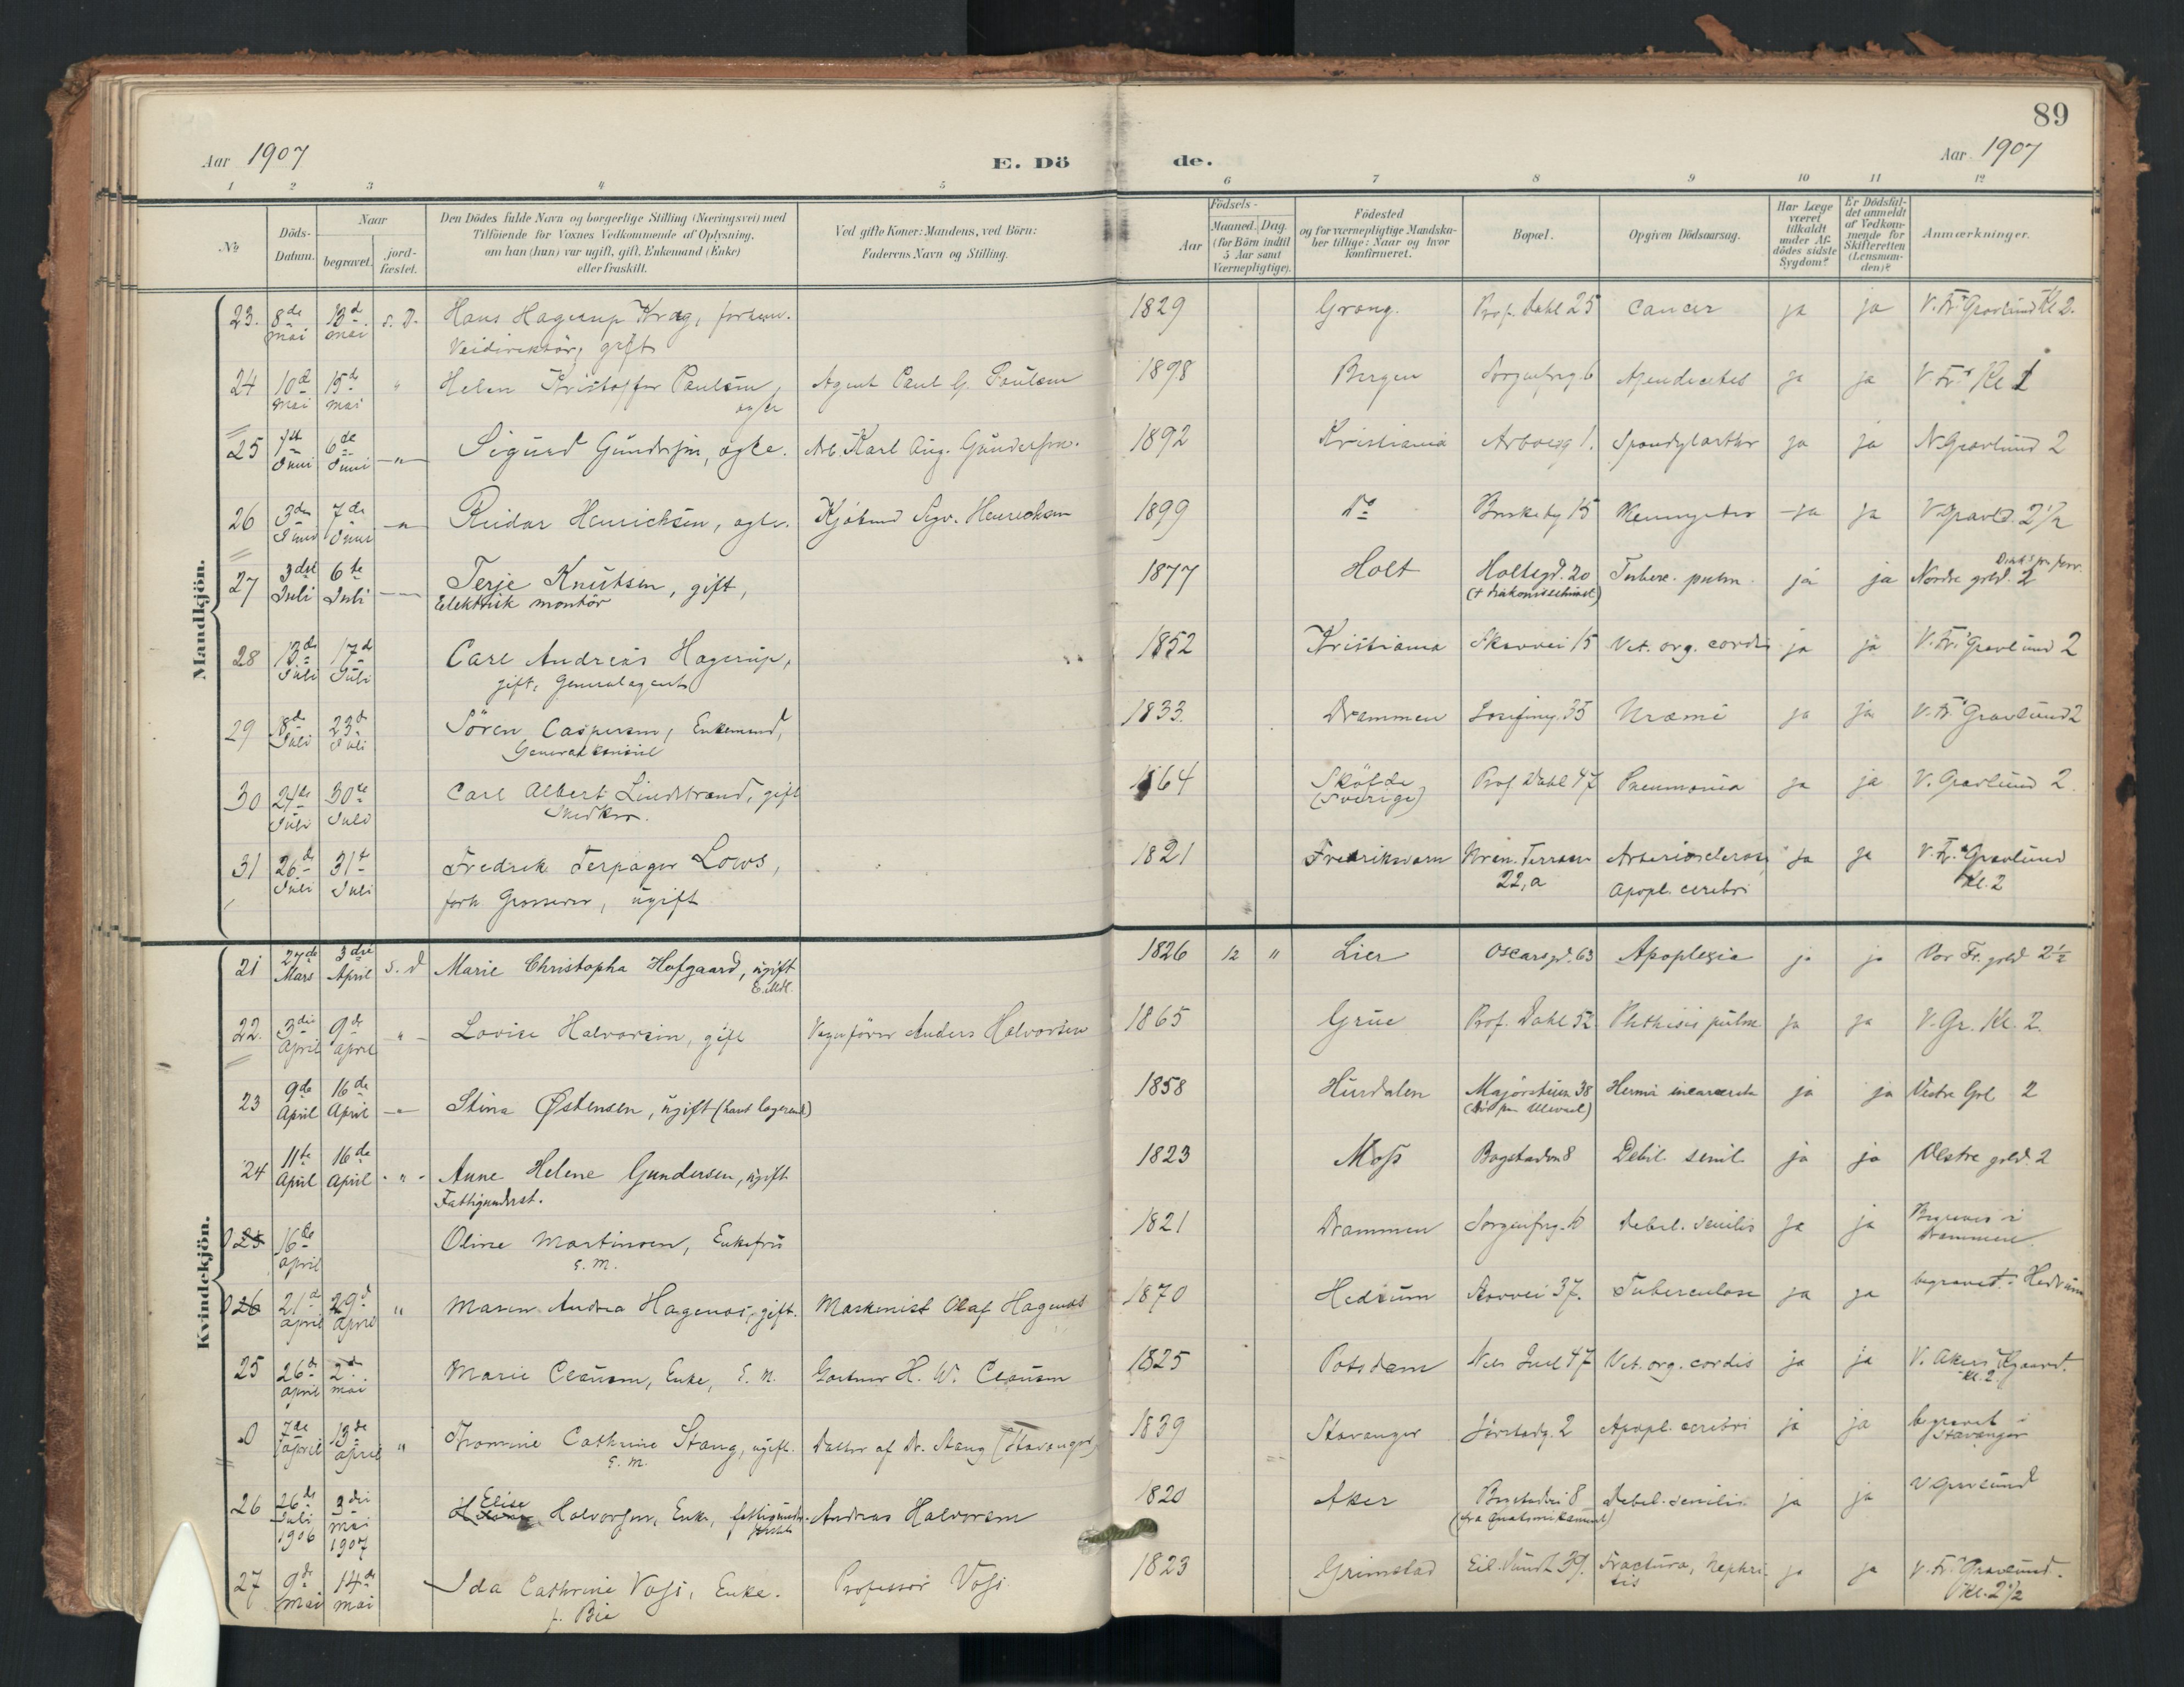 89
Aar 1907 E. Dö de. Aar 1907
1 2 3 4 5 6 7 8 9 10 11 12
No
Döds-Datum.
Naar
begravet.
jord-fæstet.
Den Dödes fulde Navn og borgerlige Stilling (Næringsvei) med
Tilföiende for Voxnes Vedkommende af Oplysning,
om han (hun) var ugift, gift, Enkemand (Enke)
eller fraskilt.
Ved gifte Koner: Mandens, ved Börn:
Faderens Navn og Stilling.
Födsels-
Aar
Maaned. Dag.
(for Börn indtil
5 Aar samt
Værnepligtige).
Födested
og for værnepligtige Mandska-
ber tillige: Naar og hvor
konfirmeret.
Bopæl.
Opgiven Dödsaarsag.
Har Læge
været
tilkaldt
under Af-
dödes sidste
Sygdom?
Er Dödsfal-
det anmeldt
af Vedkom-
mende for
Skifteretten
(Lensman-
den)?
Anmærkninger.
Mandkjön.
23. 8de mai 13d mai s. D. Hans Hagerup Krag, forhenv. 1829 Grong. Prof. Dahl 25 Cancer ja ja V. Fr. Gravlund Kl 2.
Veidirektör, gift
24 10d mai 15de mai " Helen Kristoffer Paulsen, Agent Paul G. Paulsen 1898 Bergen Sorgenfrig. 6 ja ja V Fr. Kl 1
25 1st Juni 6de Juni -"- Sigurd Gundersen, ogte. Arb. Karl Aug. Gundersen. 1892 Kristiania 1. ja ja N. Gravlund 2
26 3den Juni 7de Juni -"- Reidar Henrichsen, ogte. Kjöbmd Sigv. Henrichsen 1899 Do Briskeby 15 ja ja V. Gravld. 2 1/2
27 3die Juli 6te Juli Terje Knutsen, gift, 1877 Holt Holtegd. 20 Tuberc. pulm. ja ja Nordre grld. 2
Elektrisk montör (+ Diakonissehuset)
28 13de Juli 17d Juli Carl Andreas Hagerup, 1852 Kristiania Skovvei 15 Vit. org. cordis ja ja V. Fr. Gravlund 2
gift, Generalagent
29 18de Juli 23d Juli Sören Caspersen, Enkemand, 1833. Drammen Josefineg. 35 Uræmi ja ja V. Fr. Gravlund 2
Generalkonsul
30 24de Juli 30te Juli Carl Albert Lindstrand, gift 1864 Sköfde Prof. Dahl 47 Pneumonia ja ja V. Gravlund 2.
Snedker. (Sverige)
31 26de Juli 31te Juli Fredrik Terpager Lows, 1821 Fredriksvern Uran. Terrasse Arteriosclerose ja ja V. Fr. Gravlund
forh. Grosserer, ugift 22, a Apopl. cerebri Kl. 2
Kvindekjön.
21 27de Mars 3die April s. d Marie Christopha Hofgaard, ugift 1826 12 " Lier Oscarsgd. 63 Apoplexia ja ja Vor Fr. grld 2 1/2
E. Md.
22. 3die April 9de April " Lovise Halvorsen, gift Vognförer Anders Halvorsen 1865 Grue Prof. Dahl 52 Phthisis pulm ja ja V. Gr. Kl. 2.
23 9de April 16de April -"- Stina Østensen, ugift 1858 Hurdalen Majorstuen 38 Hernia incarcerata ja ja Vestre Grl 2
24 11te April 16de April -"- Anne Helene Gundersen, ugift 1823 Moss Bogstadvn 8 Debil. senil ja ja Vestre grld. 2
Fattigunderst.
0 25 16de April Oline Martinsen, Enkefru 1821 Drammen Sorgenfrig. 6 Debil. senilis ja ja Begraves i Drammen
E. M.
0 26 21d April 29d April " Maren Andrea Hagenæs, gift. Maskinist Olaf Hagenæs 1870 Hedrum Skovvei 37. Tuberculose ja ja begravet i Hedrum
25 26de April 2d mai Marie Clausen, Enke, E. M. Gartner H. W. Clausen 1825 Potsdam Niels Juel 47 Vit. org. cordis ja ja V. Akers Kgaard. Kl. 2.
0 7de April 13de April " Thomine Cathrine Stang, ugift. Datter af Dr. Stang (Stavanger) 1839 Stavanger 2 Apopl. cerebri ja ja begravet i Stavanger
E. M.
26 26de Juli 1906 3die mai 1907 Elise Halvorsen, Enke, Andreas Halvorsen 1820 Aker Bogstadvei 8 Debil. senilis ja ja V Gravlund
27 9de mai 14de mai Ida Cathrine Voss, Enke. Professor Voss. 1823 Grimstad Eil. Sundt 39. Fractura, Nephri- ja ja V. Fr. Gravlund.
f. Bie tis Kl. 2 1/2